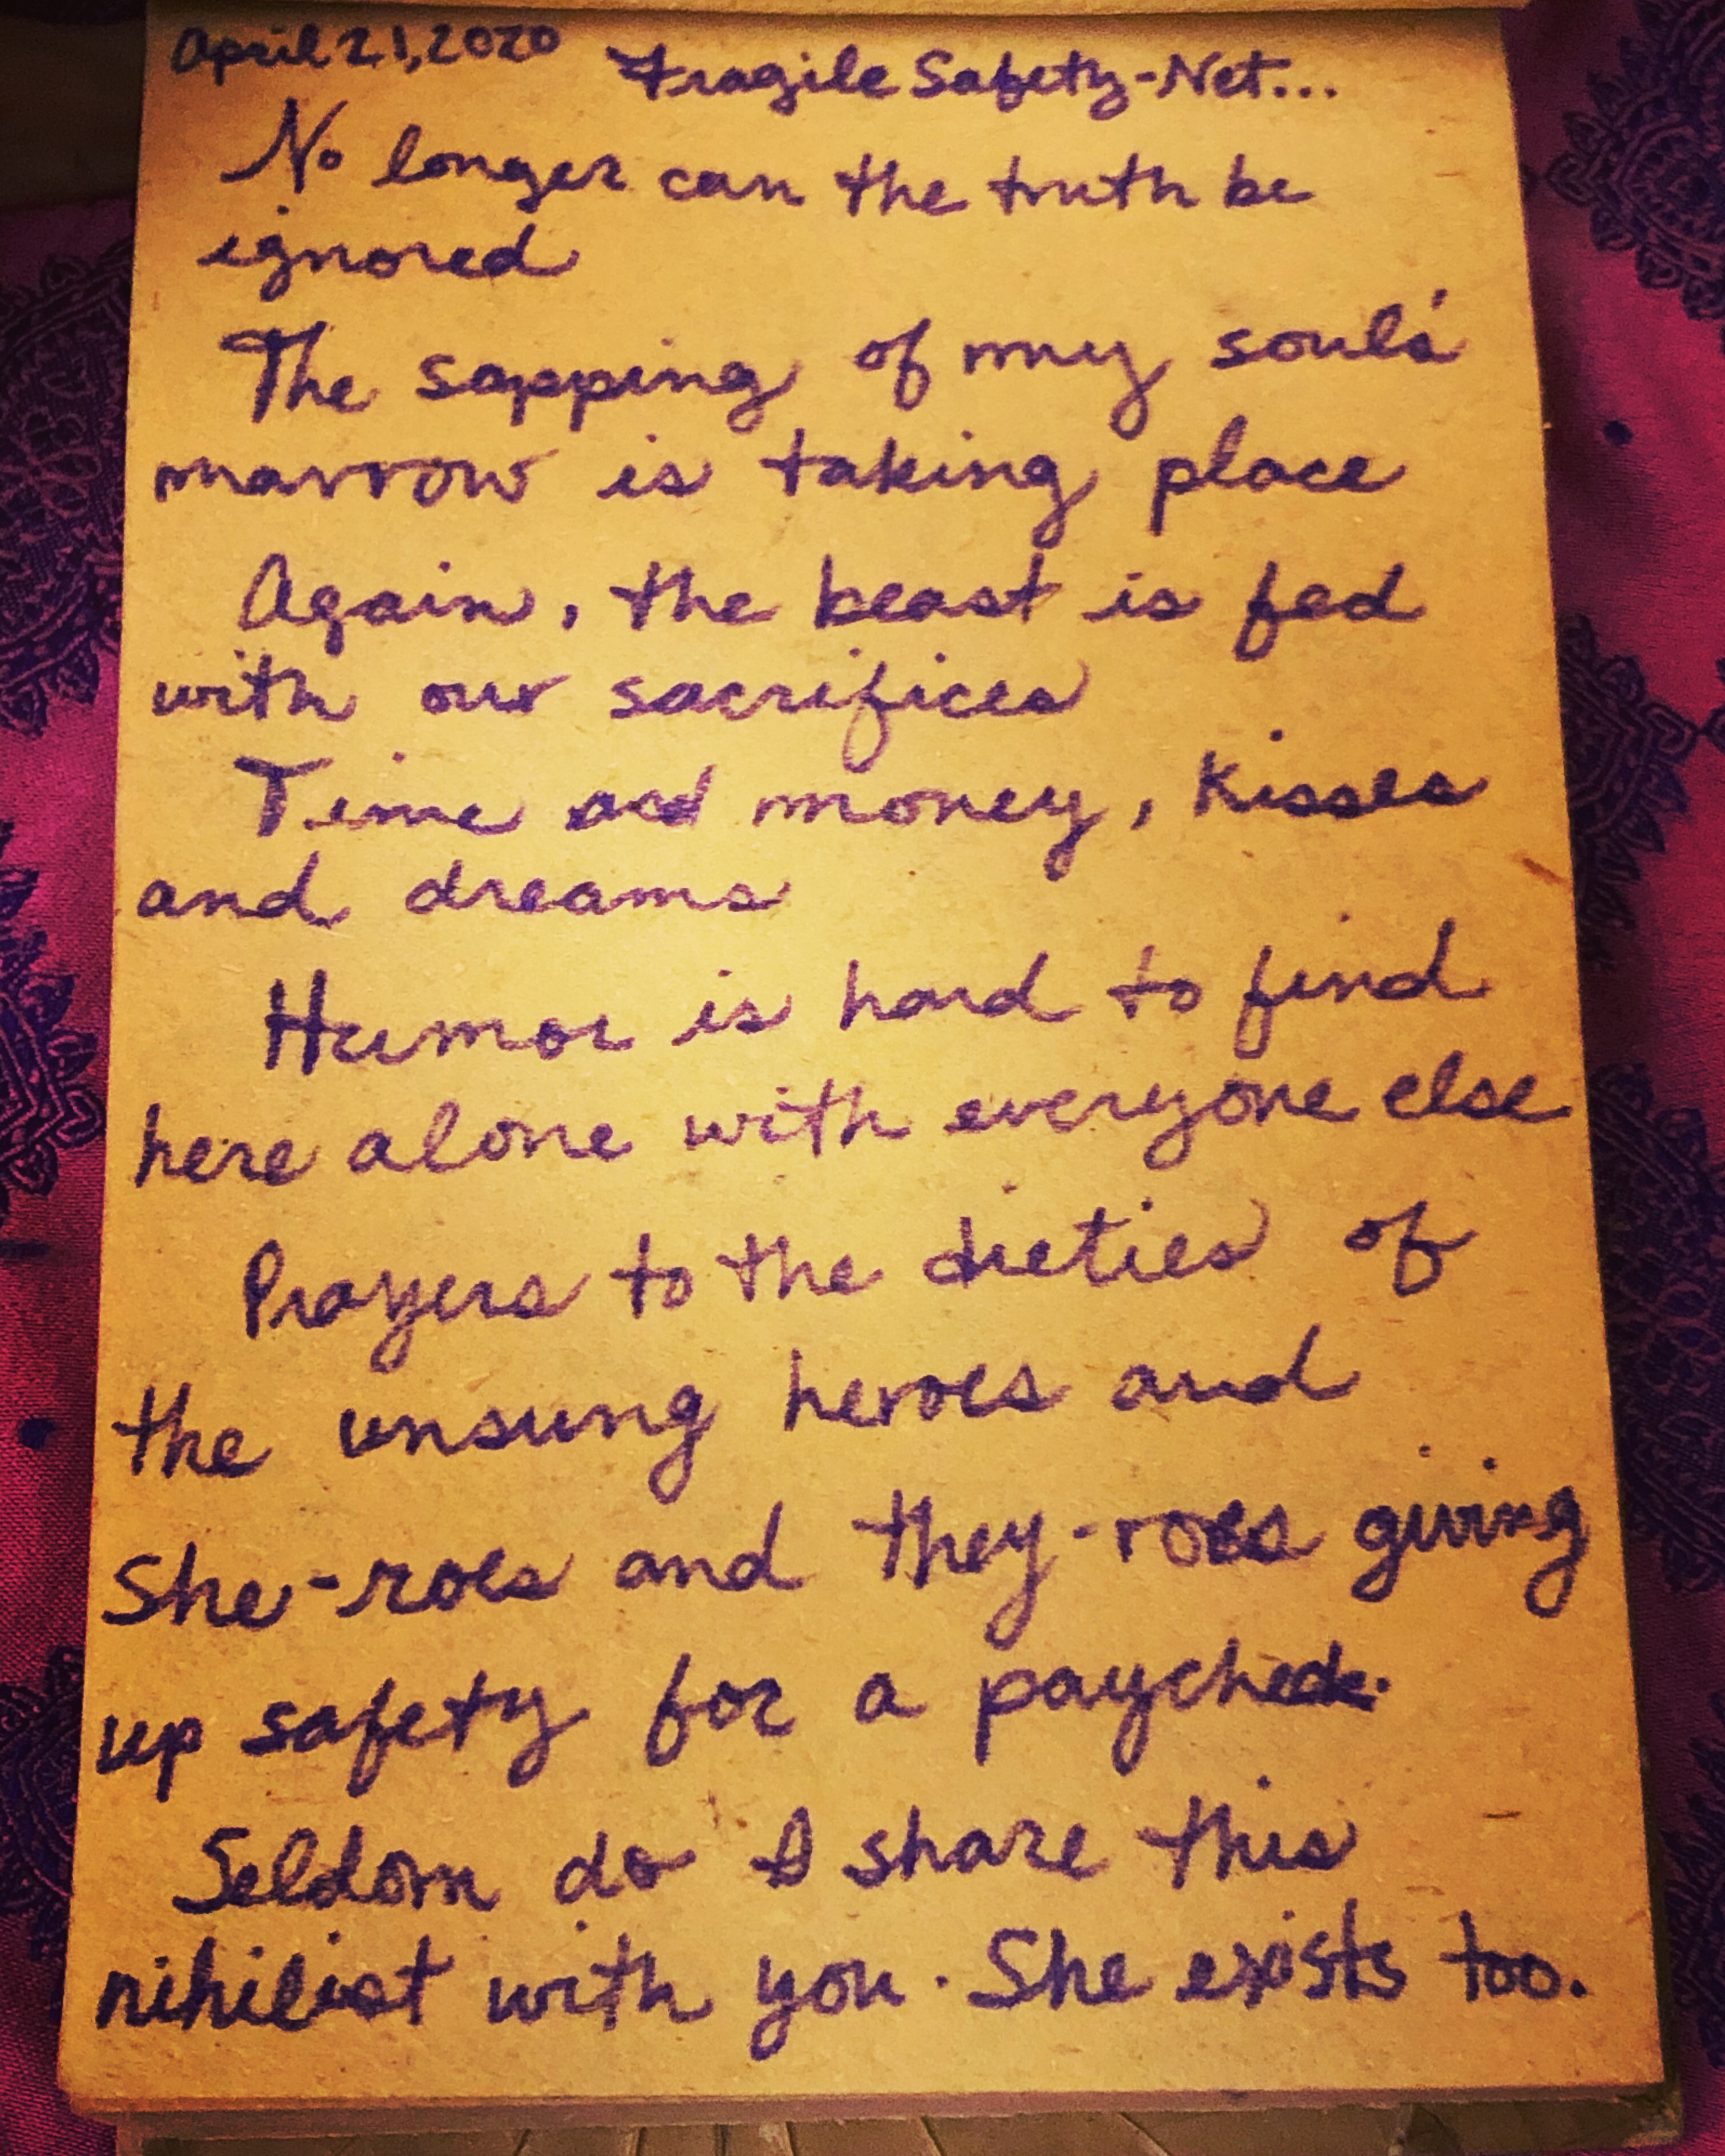 April 21, 2020 Fragile Safety-Net...
No longer can the truth be
ignored
The sapping of my souls'
marrow is taking place
Again, the beast is fed
with our sacrifices
Time and money, kisses
and dreams
Humor is hard to find
here alone with everyone else
Prayers to the dieties of
the unsung heroes and
She-roes and they-roes giving
up safety for a paycheck.
Seldom do I share this
nihilist with you. She exists too.